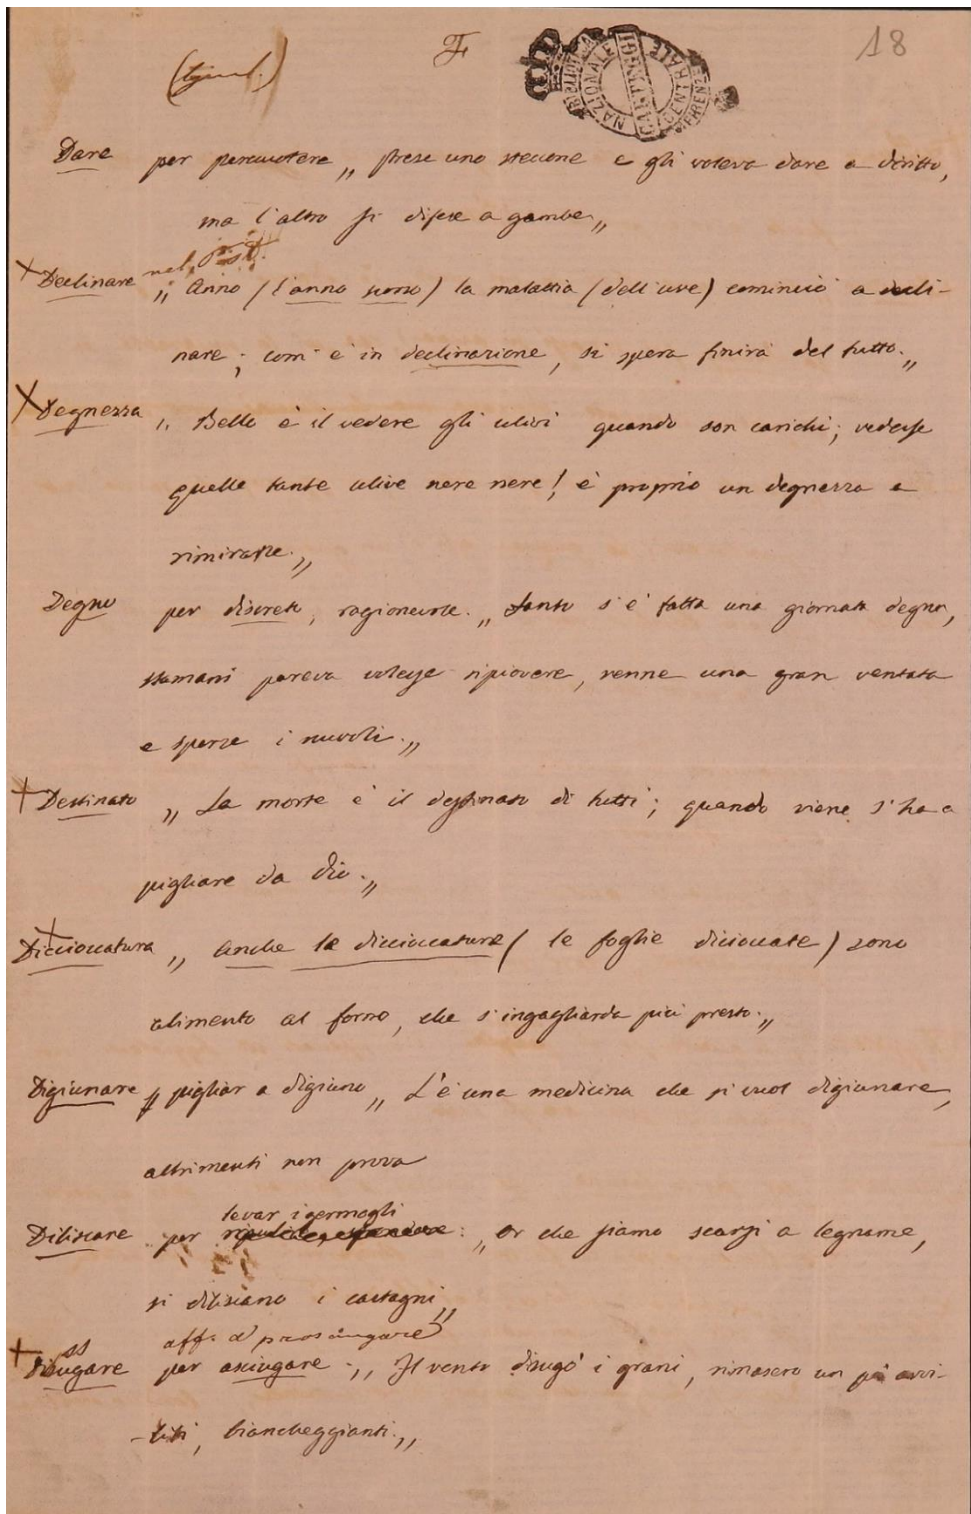 18
BIBLIOTECA NAZIONALE CENTRALE FIRENZE
Dare per percuotere „ prese uno steccone e gli voleva dare a diritto,
ma l'altro si difese a gambe„
nel
Declinare „ Anno (l'anno scorso) la malattia (dell'uve) cominciò a decli-
nare; com'è in declinazione, si spera finirà del tutto.„
Degnezza „ Bello è il vedere gli ulivi quando son carichi; vedesse
quelle tante ulive nere nere! è proprio un degnezza a
rimiralle.„
Degno per discreto, ragionevole. „ Tanto s'è fatta una giornata degna,
stamani pareva volesse ripiovere, venne una gran ventata
e sperse i nuvoli.„
Destinato „ La morte è il destinato di tutti; quando viene s'ha a
pigliare da Dio.„
Dicioccatura „ Anche le dicioccature (le foglie dicioccate) sono
alimento al forno, che s'ingagliarda più presto.„
Digiunare „ pigliar a digiuno „ L'è una medicina che si vuol digiunare,
altrimenti non prova
levar i germogli
Diliscare per : „ Or che siamo scarsi a legname,
si diliscano i castagni„
aff. a prosciugare
ss
Disugare per asciugare. „ Il vento disugò i grani, rimasero un pò avvi-
liti, biancheggianti.„